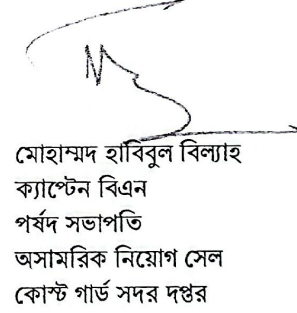 মোহাম্মদ হাবিবুল বিল্যাহ
ক্যাপ্টেন বিএন
পর্ষদ সভাপতি
অসামরিক নিয়োগ সেল
কোস্ট গার্ড সদর দপ্তর